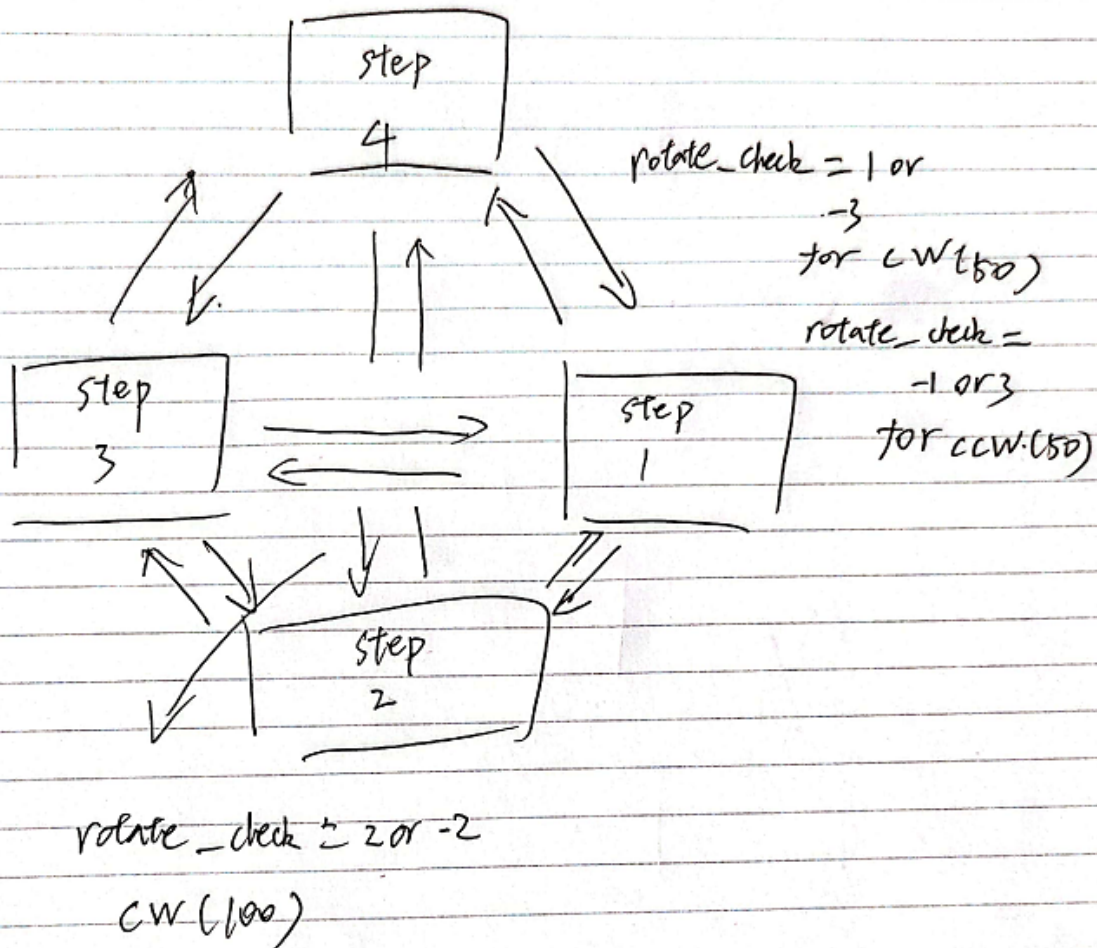 step
4
rotate_check = 1 or
-3
for CW(50)
rotate_check =
-1 or 3
for CCW.(50)
step
3
step
1
step
2
rotate_check = 2 or -2
CW(100)